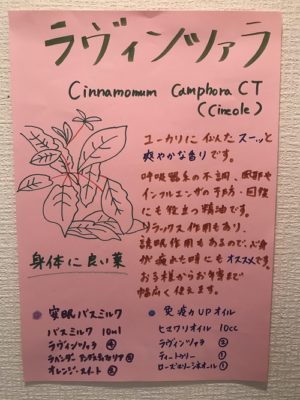 ラヴィンツァラ
Cinnamomum Camphora CT
(Cineole)
ユーカリに似たスーッと
爽やかな香りです。
呼吸器系の不調、風邪や
インフルエンザの予防・回復
にも役立つ精油です。
リラックス作用もあり、
誘眠作用もあるので、心身
が疲れた時にもオススメです。
お子様からお年寄まで
幅広く使えます。
身体に良い葉
安眠バスミルク
バスミルク 10ml
ラヴィンツァラ ④
ラベンダーアングスティフォリア ③
オレンジスイート ③
免疫力UPオイル
ヒマワリオイル 10cc
ラヴィンツァラ ②
ティートゥリー ①
ローズマリーシネオール ①